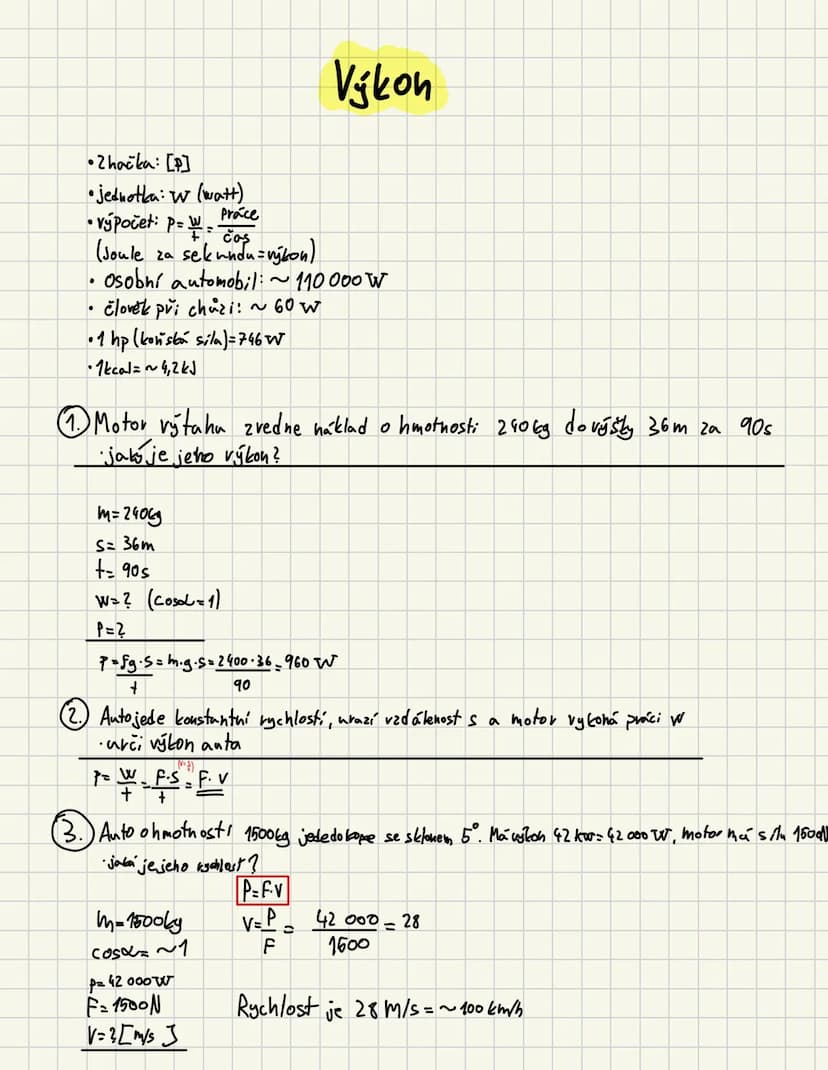 Výkon
• Značka: [P]
• jednotka: W (watt)
• výpočet: P= W/t = práce/čas
(Joule za sekundu=výkon)
• osobní automobil: ~ 110 000 W
• člověk při chůzi: ~ 60 W
• 1 hp (koňská síla)=746 W
• 1kcal= ~4,2 kJ
1. Motor výtahu zvedne náklad o hmotnosti 240kg do výšky 36m za 90s
· jaký je jeho výkon?
m= 240kg
s= 36m
t= 90s
W=? (cosα=1)
P=?
P = Fg·s/t = m·g·s = 2400·36/90 = 960 W
2. Auto jede konstantní rychlostí, urazí vzdálenost s a motor vykoná práci W
· urči výkon auta
P= W/t = F·s/t = F·v
3. Auto o hmotnosti 1500kg jede do kopce se sklonem 5°. Má výkon 42 kW= 42 000 W, motor má sílu 1500N
· jaká je jeho rychlost?
P=F·v
m= 1500kg
v= P/F = 42 000/1500 = 28
cosα= ~1
P= 42 000 W
F= 1500N
Rychlost je 28 m/s = ~100 km/h
v=? [m/s]